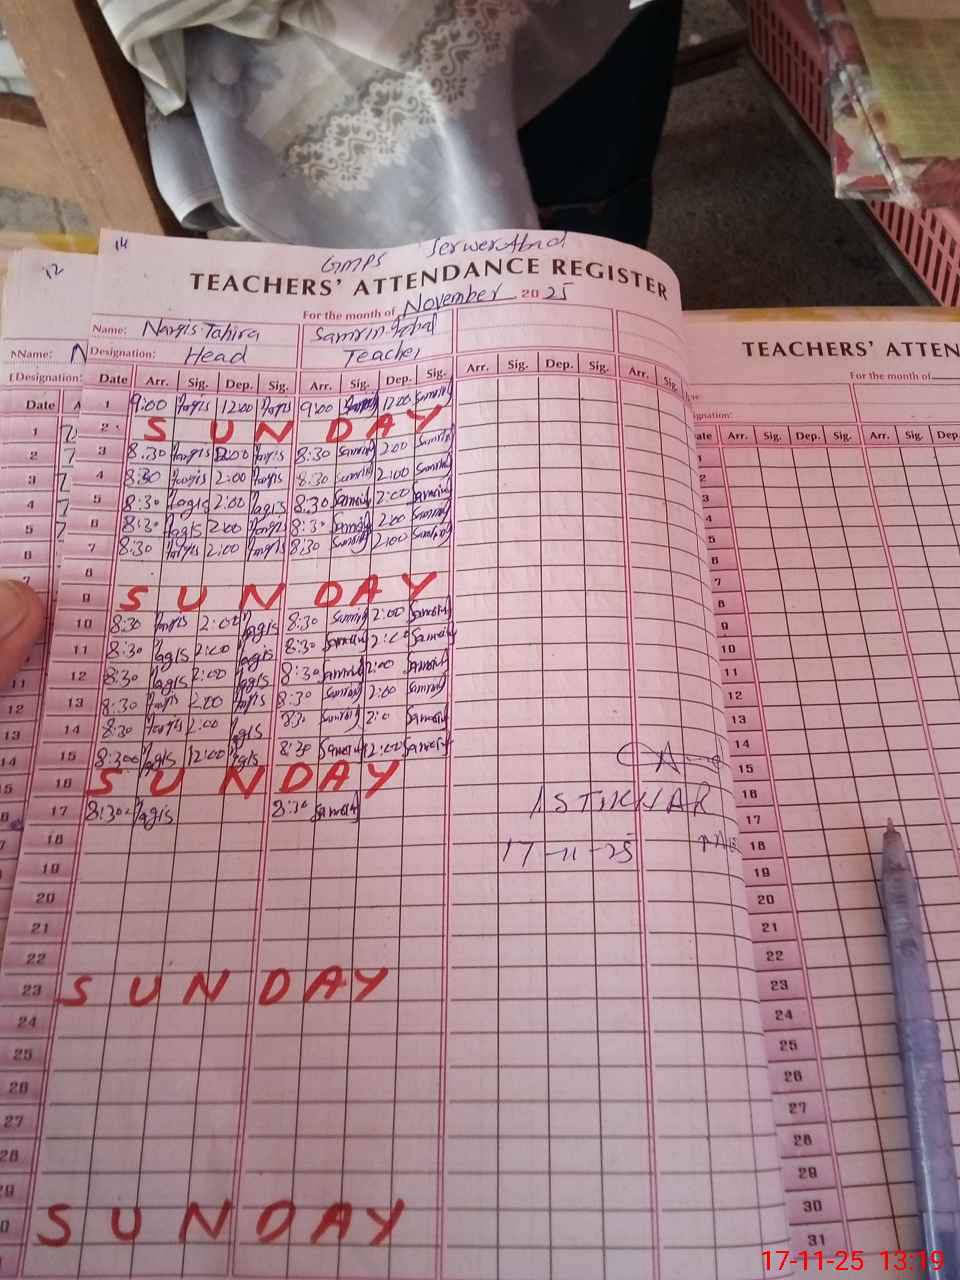 14
GMPS SerwerAbad
TEACHERS' ATTENDANCE REGISTER
For the month of November 2025
Name: Nargis Tahira Samrin Iqbal
Designation: Head Teacher
Date Arr. Sig. Dep. Sig. Arr. Sig. Dep. Sig. Arr. Sig. Dep. Sig. Arr. Sig.
1 9:00 Nargis 12:00 Nargis 9:00 Samrin 12:00 Samrin
2 SUNDAY
3 8:30 Nargis 2:00 Nargis 8:30 Samrin 2:00 Samrin
4 8:30 Nargis 2:00 Nargis 8:30 Samrin 2:00 Samrin
5 8:30 Nagis 2:00 Nagis 8:30 Samrin 2:00 Samrin
6 8:30 Nagis 2:00 Nargis 8:30 Samrin 2:00 Samrin
7 8:30 Nargis 2:00 Nargis 8:30 Samrin 2:00 Samrin
8
9 SUNDAY
10 8:30 Nargis 2:00 Nagis 8:30 Samrin 2:00 Samrin
11 8:30 Nagis 2:00 Nagis 8:30 Samrin 2:00 Samrin
12 8:30 Nagis 2:00 Nagis 8:30 Samrin 2:00 Samrin
13 8:30 Nargis 2:00 Nargis 8:30 Samrin 2:00 Samrin
14 8:30 Nargis 2:00 Nagis 8:30 Samrin 2:0 Samrin
15 8:30 Nagis 12:00 Nagis 8:30 Samrin 12:00 Samrin
16 SUNDAY
17 8:30 Nagis 8:30 Samrin
18
19
20
21
22
23 SUNDAY
24
25
26
27
28
29
30 SUNDAY
17-11-25
12
Name: N
Designation:
Date A
1
2
3
4
5
6
7
11
12
13
14
TEACHERS' ATTEN
For the month of
Arr. Sig. Dep. Sig. Arr. Sig. Dep.
3
4
5
6
7
8
9
10
11
12
13
14
15
16
17
18
19
20
21
22
23
24
25
26
27
28
29
30
31
17-11-25 13:19